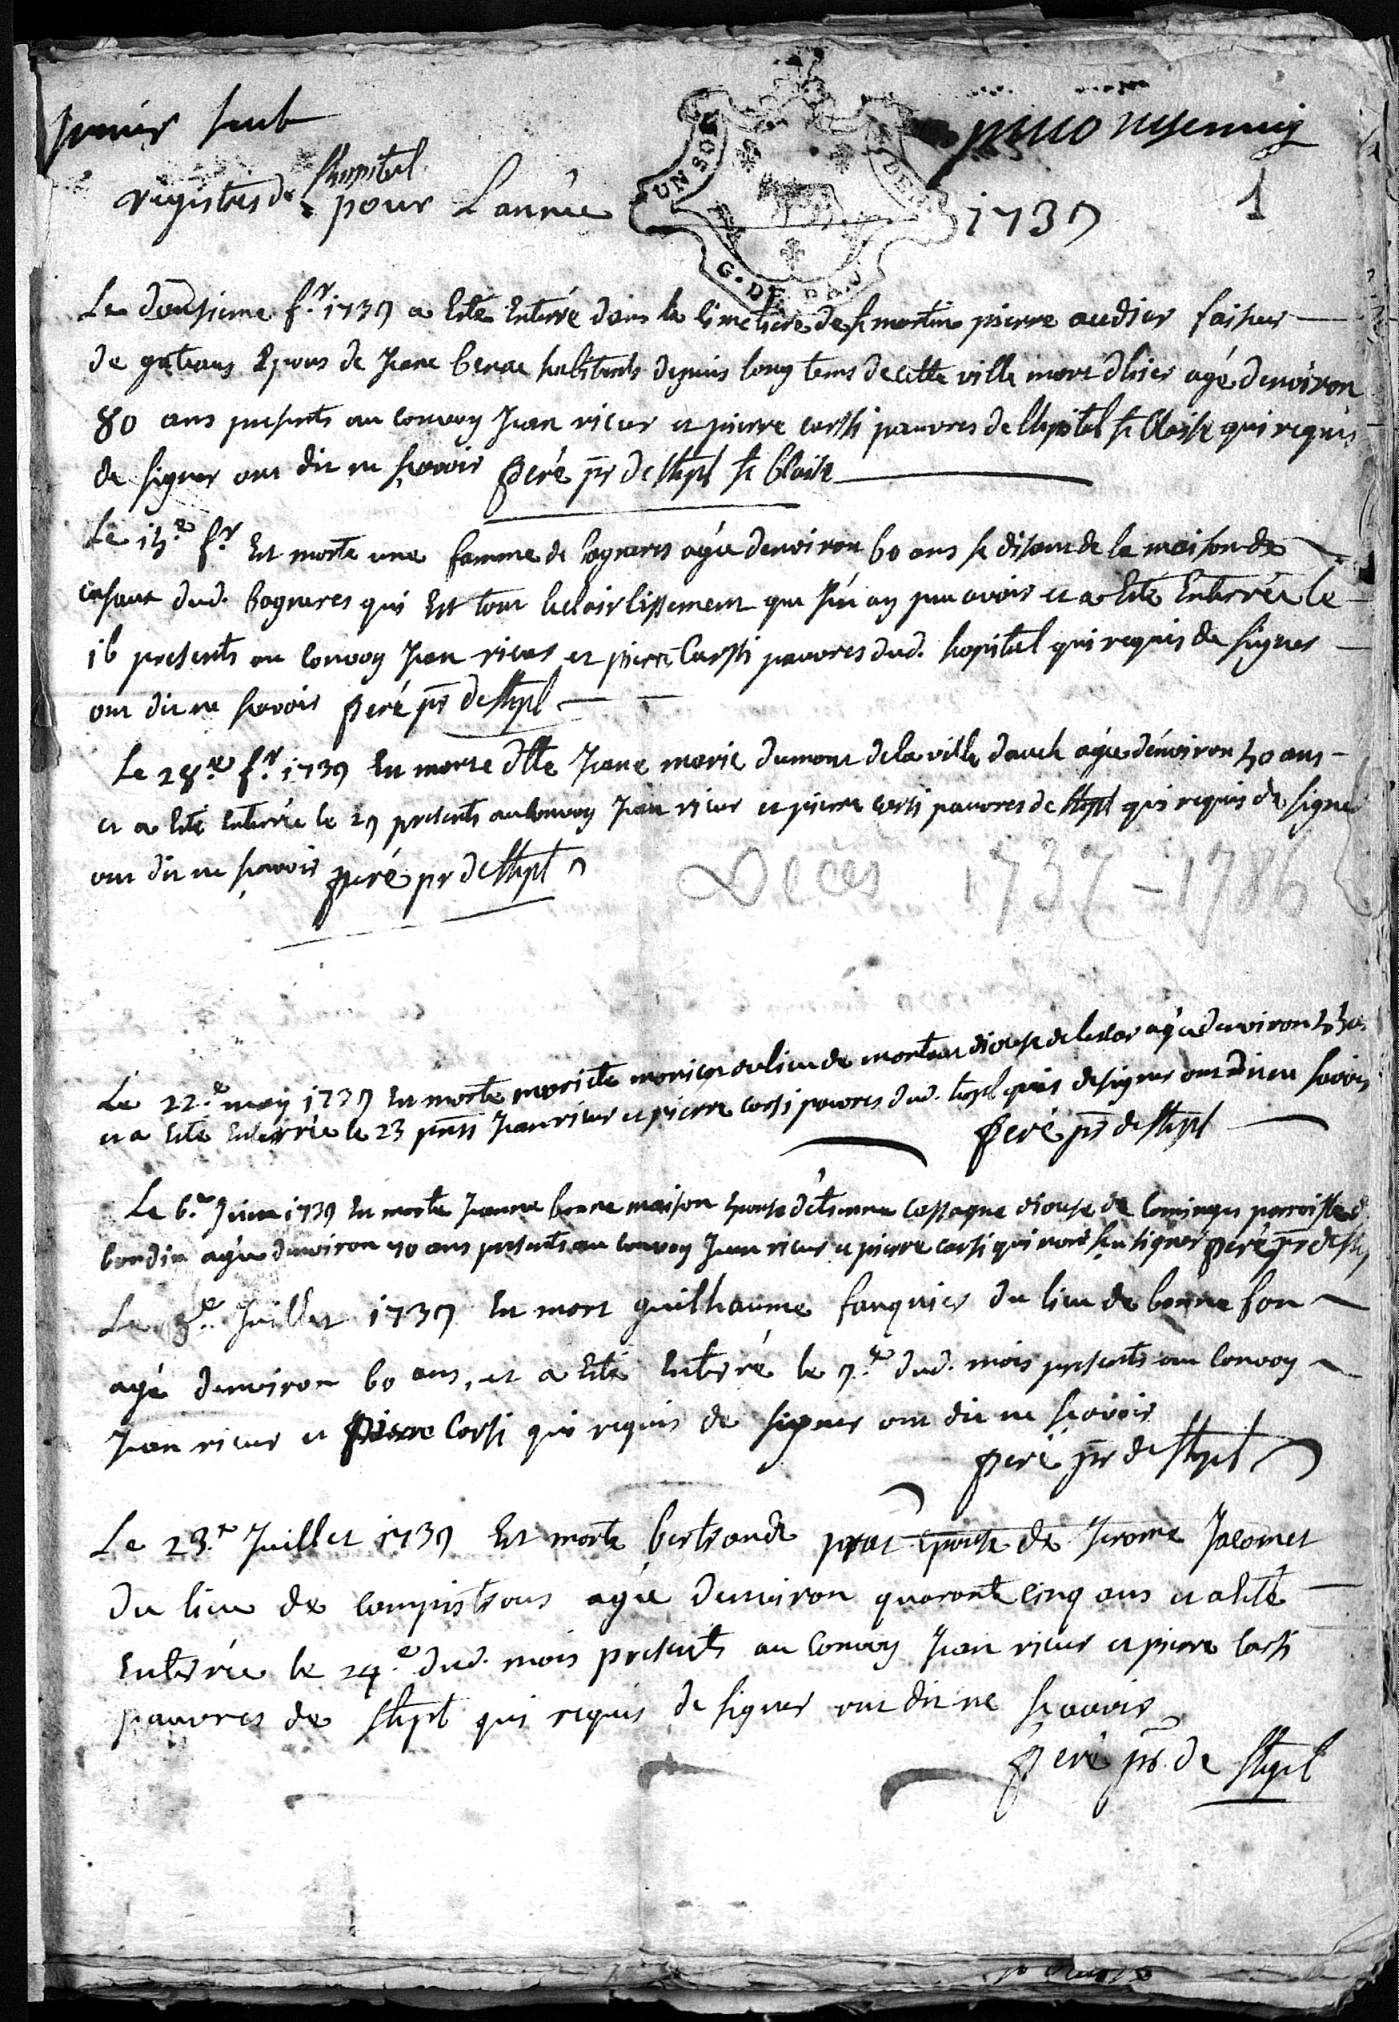 premier
registres de lhopital pour Lannée 1737
1
UN SOL
G. DE PAU
Le dousieme fr. 1737 a este Enterré dans le cimetiere de st martin pierre audier faiseur
de gateaus Epous de Jeane benac habitants depuis long tems de cette ville mort dhier agé denviron
80 ans presents au convoy Jean rieus et pierre corsi pauvres de lhopital st Blaise qui requis
de signer ont dit ne scavoir peré pr de lhpl st blaise
Le 15e fr. Est morte une famme de bagneres agée denviron 60 ans se disant de la maison de
dud. bagneres qui Est tout leclairsissement que jen ay peu avoir et a Esté Enterrée le
16 presents au convoy Jean rieus et pierre Corsi pauvres dud. hopital qui requis de signer
ont dit ne scavoir peré pr de lhpl
Le 28e fr. 1737 Est morte dlle Jeane marie dumont de la ville dauch agée denviron 50 ans
et a Esté Enterrée le 29 presents au convoy Jean rieus et pierre corsi pauvres de lhpl qui requis de signer
ont dit ne scavoir peré pr de lhpl
Décès 1737-1786
Le 22e may 1737 Est morte du lieu de diocese de lescar agée denviron
et a Esté Enterrée le 23 pnts Jean rieus et pierre corsi pauvres dud. hopl requis de signer ont dit ne scavoir
peré pr de lhpl
Le 6e Juin 1737 Est morte Jeanne bonnemaison Epouse détienne Cassagne diocese de Cominges parroisse d
agée denviron 50 ans presents au convoy Jean rieus et pierre corsi qui nont sceu signer peré pr de lhpl
Le 8e Juillet 1737 Est mort guilhaume fauquier du lieu de bonnefon
agé denviron 60 ans, et a Esté Enterré le 9e dud. mois presents au Convoy
Jean rieus et Pierre Corsi qui requis de signer ont dit ne scavoir
peré pr de lhpl
Le 23e Juillet 1737 Est morte bertrande prat Epouse de Jerome Jacomet
du lieu de campistrous agée denviron quarante cinq ans et a Esté
Enterrée le 24e dud. mois presents au Convoy Jean rieus et pierre Corsi
pauvres de lhpl qui requis de signer ont dit ne scavoir
peré pr. de lhpl